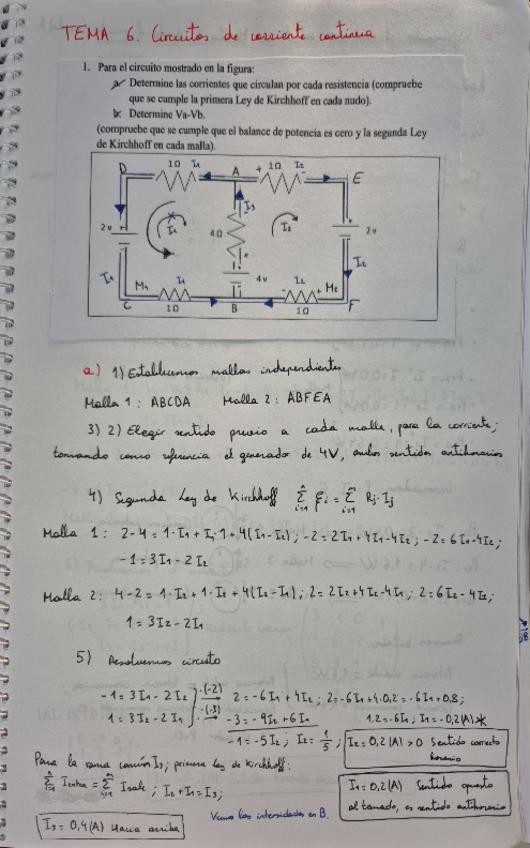 TEMA 6. Circuitos de corriente continua
1. Para el circuito mostrado en la figura:
a. Determine las corrientes que circulan por cada resistencia (compruebe
que se cumple la primera Ley de Kirchhoff en cada nudo).
b. Determine Va-Vb.
(compruebe que se cumple que el balance de potencia es cero y la segunda Ley
de Kirchhoff en cada malla).
D 1Ω I₁ A + 1Ω I₂ E
I₃
2v + I₁ 4Ω I₂ 2v
I₁ 4v I₂
M₁ I₁ I₂ M₂
C 1Ω B 1Ω F
a) 1) Establecemos mallas independientes
Malla 1: ABCDA Malla 2: ABFEA
3) 2) Elegir sentido previo a cada malla, para la corriente;
tomando como referencia el generador de 4V, ambos sentidos antihorarios
4) Segunda Ley de Kirchhoff Σ ξi = Σ Rj·Ij
Malla 1: 2-4 = 1·I₁ + I₁·1 + 4(I₁-I₂); -2 = 2I₁+4I₁-4I₂; -2 = 6I₁-4I₂;
-1 = 3I₁ - 2I₂
Malla 2: 4-2 = 1·I₂ + 1·I₂ + 4(I₂-I₁); 2 = 2I₂+4I₂-4I₁; 2 = 6I₂-4I₁;
1 = 3I₂ - 2I₁
5) Resolvemos circuito
-1 = 3I₁ - 2I₂ } ·(-2) → 2 = -6I₁ + 4I₂; 2 = -6I₁ + 4·0,2 = -6I₁ + 0,8;
1 = 3I₂ - 2I₁ } ·(-3) → -3 = -9I₂ + 6I₁ 1,2 = -6I₁; I₁ = -0,2(A)*
-1 = -5I₂; I₂ = 1/5; I₂ = 0,2(A) > 0 Sentido correcto
horario
Para la rama común I₃, primera ley de Kirchhoff:
Σ Ientra = Σ Isale; I₂ + I₁ = I₃;
I₁ = 0,2(A) Sentido opuesto
al tomado, es sentido antihorario
I₃ = 0,4(A) Hacia arriba
Vemos las intensidades en B.